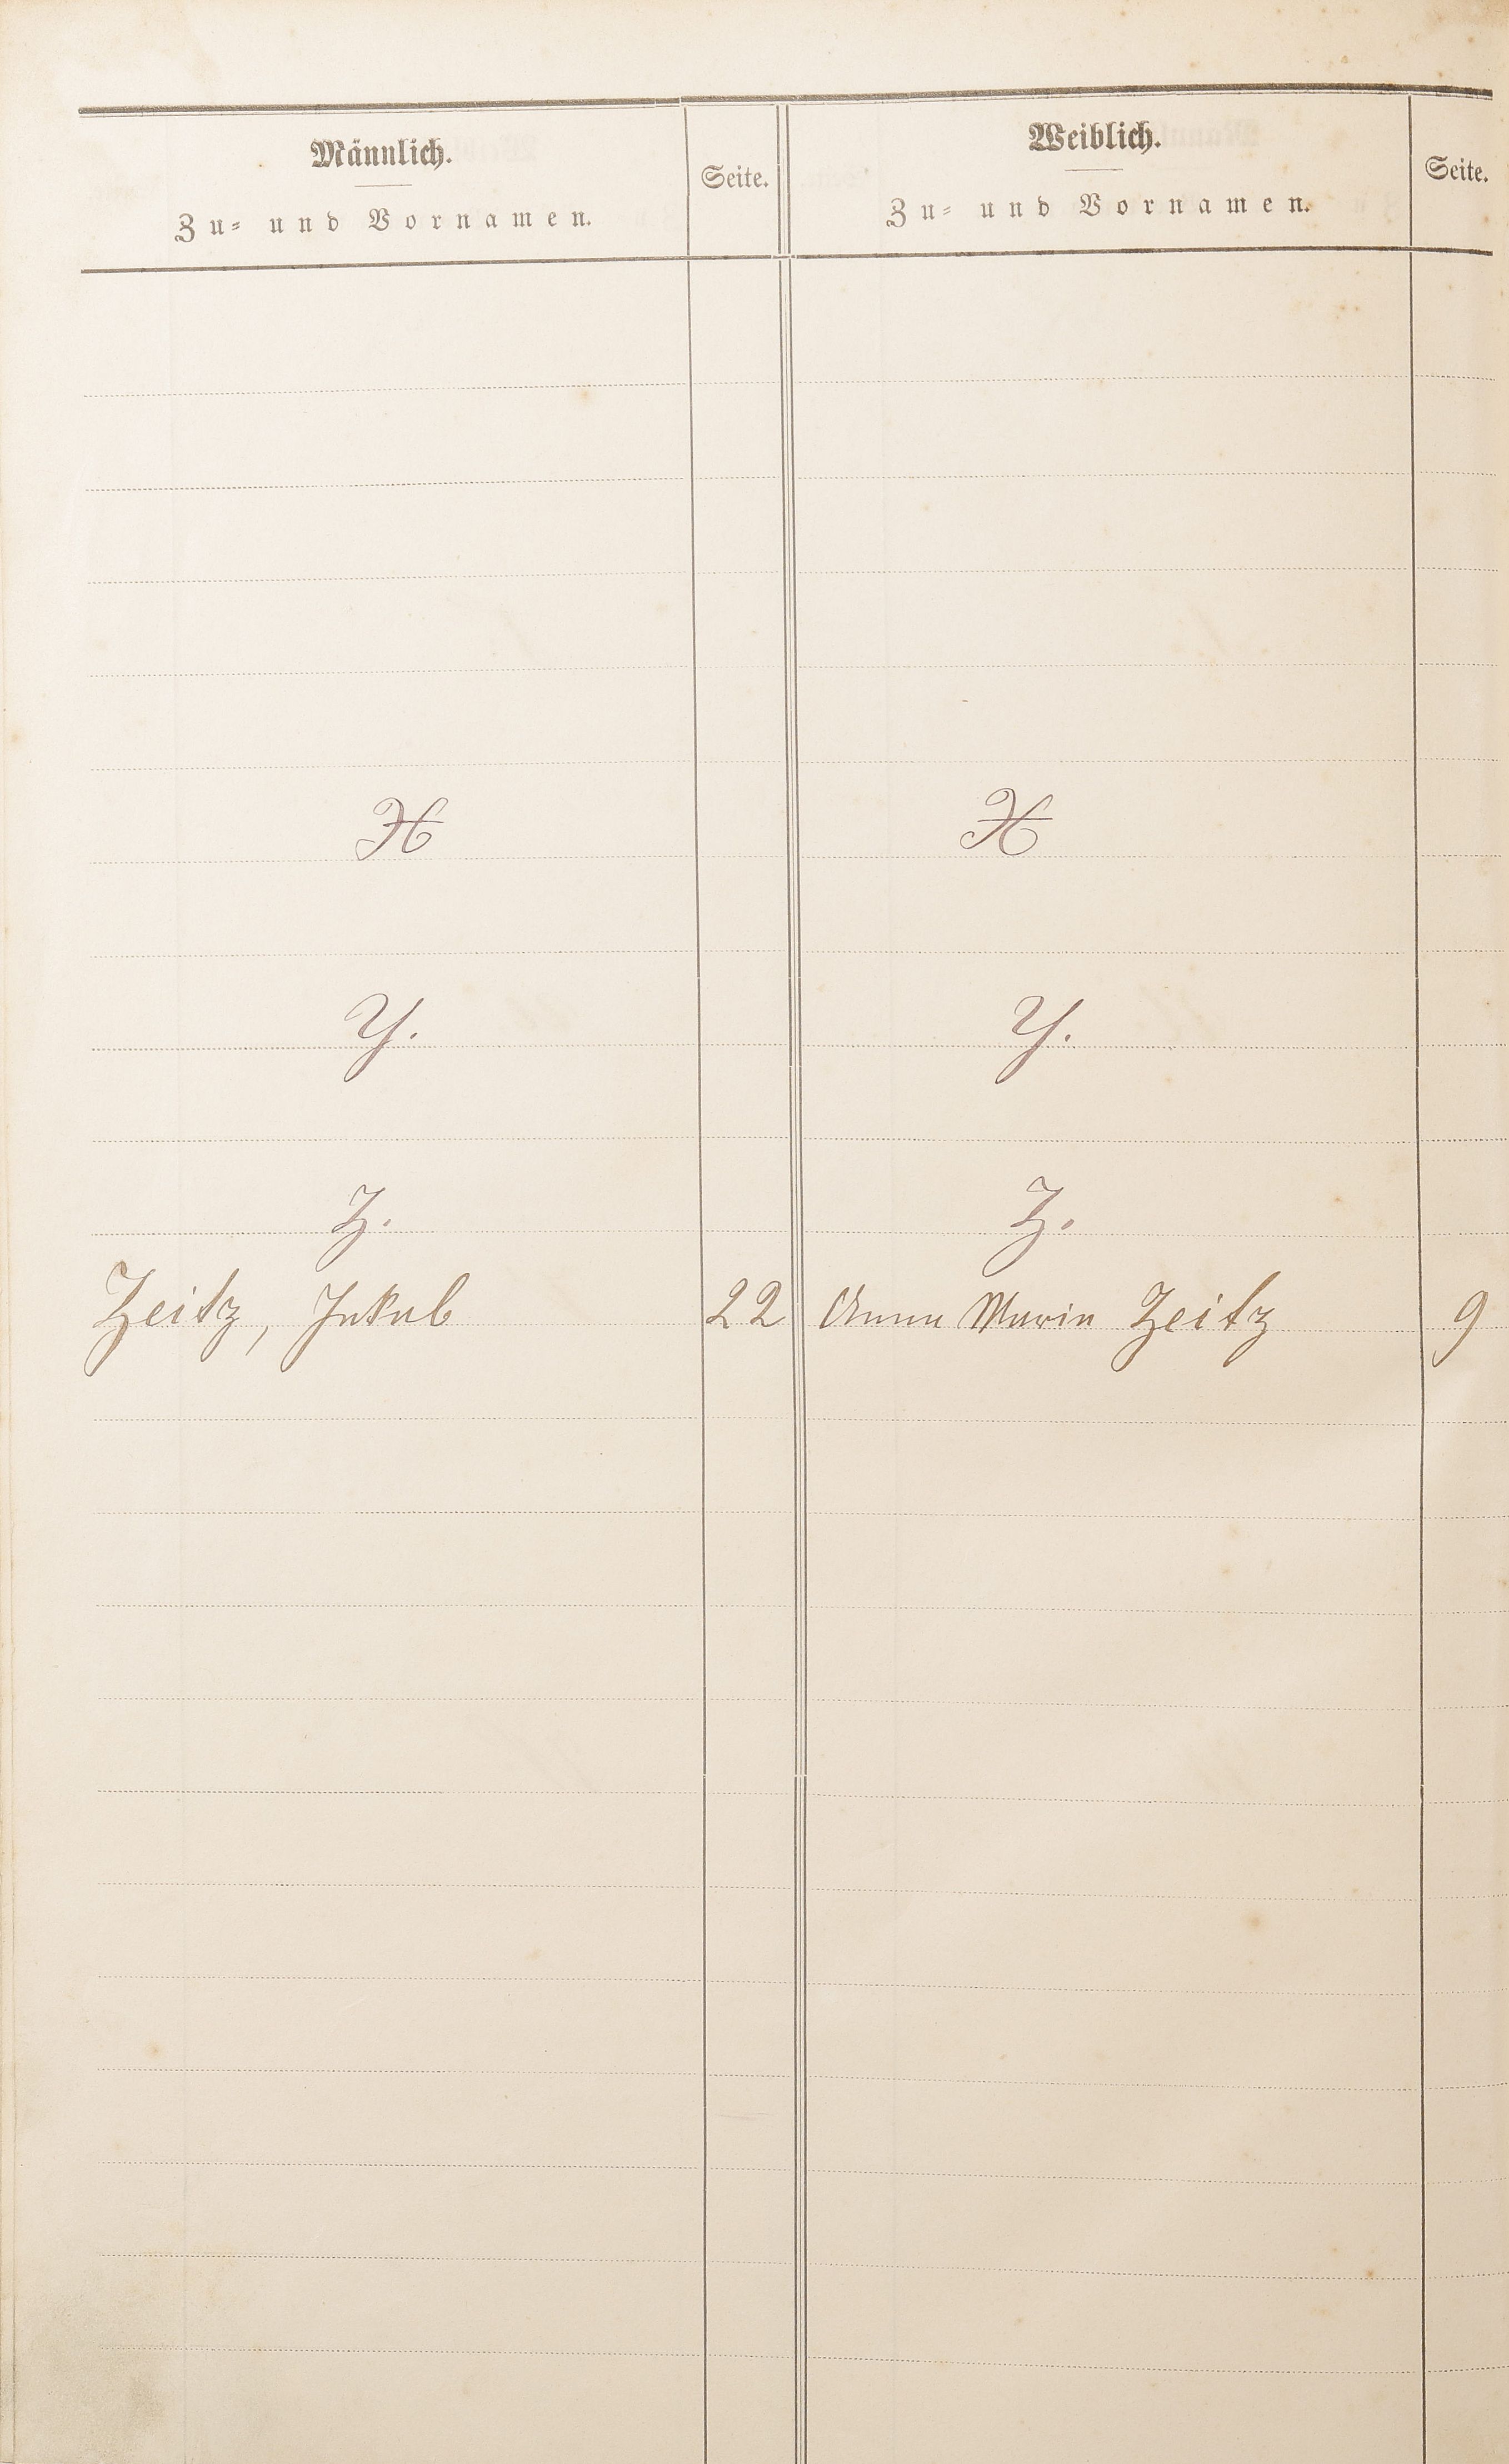 Männlich. Weiblich.
Seite. Seite.
Zu- und Vornamen. Zu- und Vornamen.
X X
Y. Y.
Z. Z.
Zeitz, Jakob 22 Anna Maria Zeitz 9